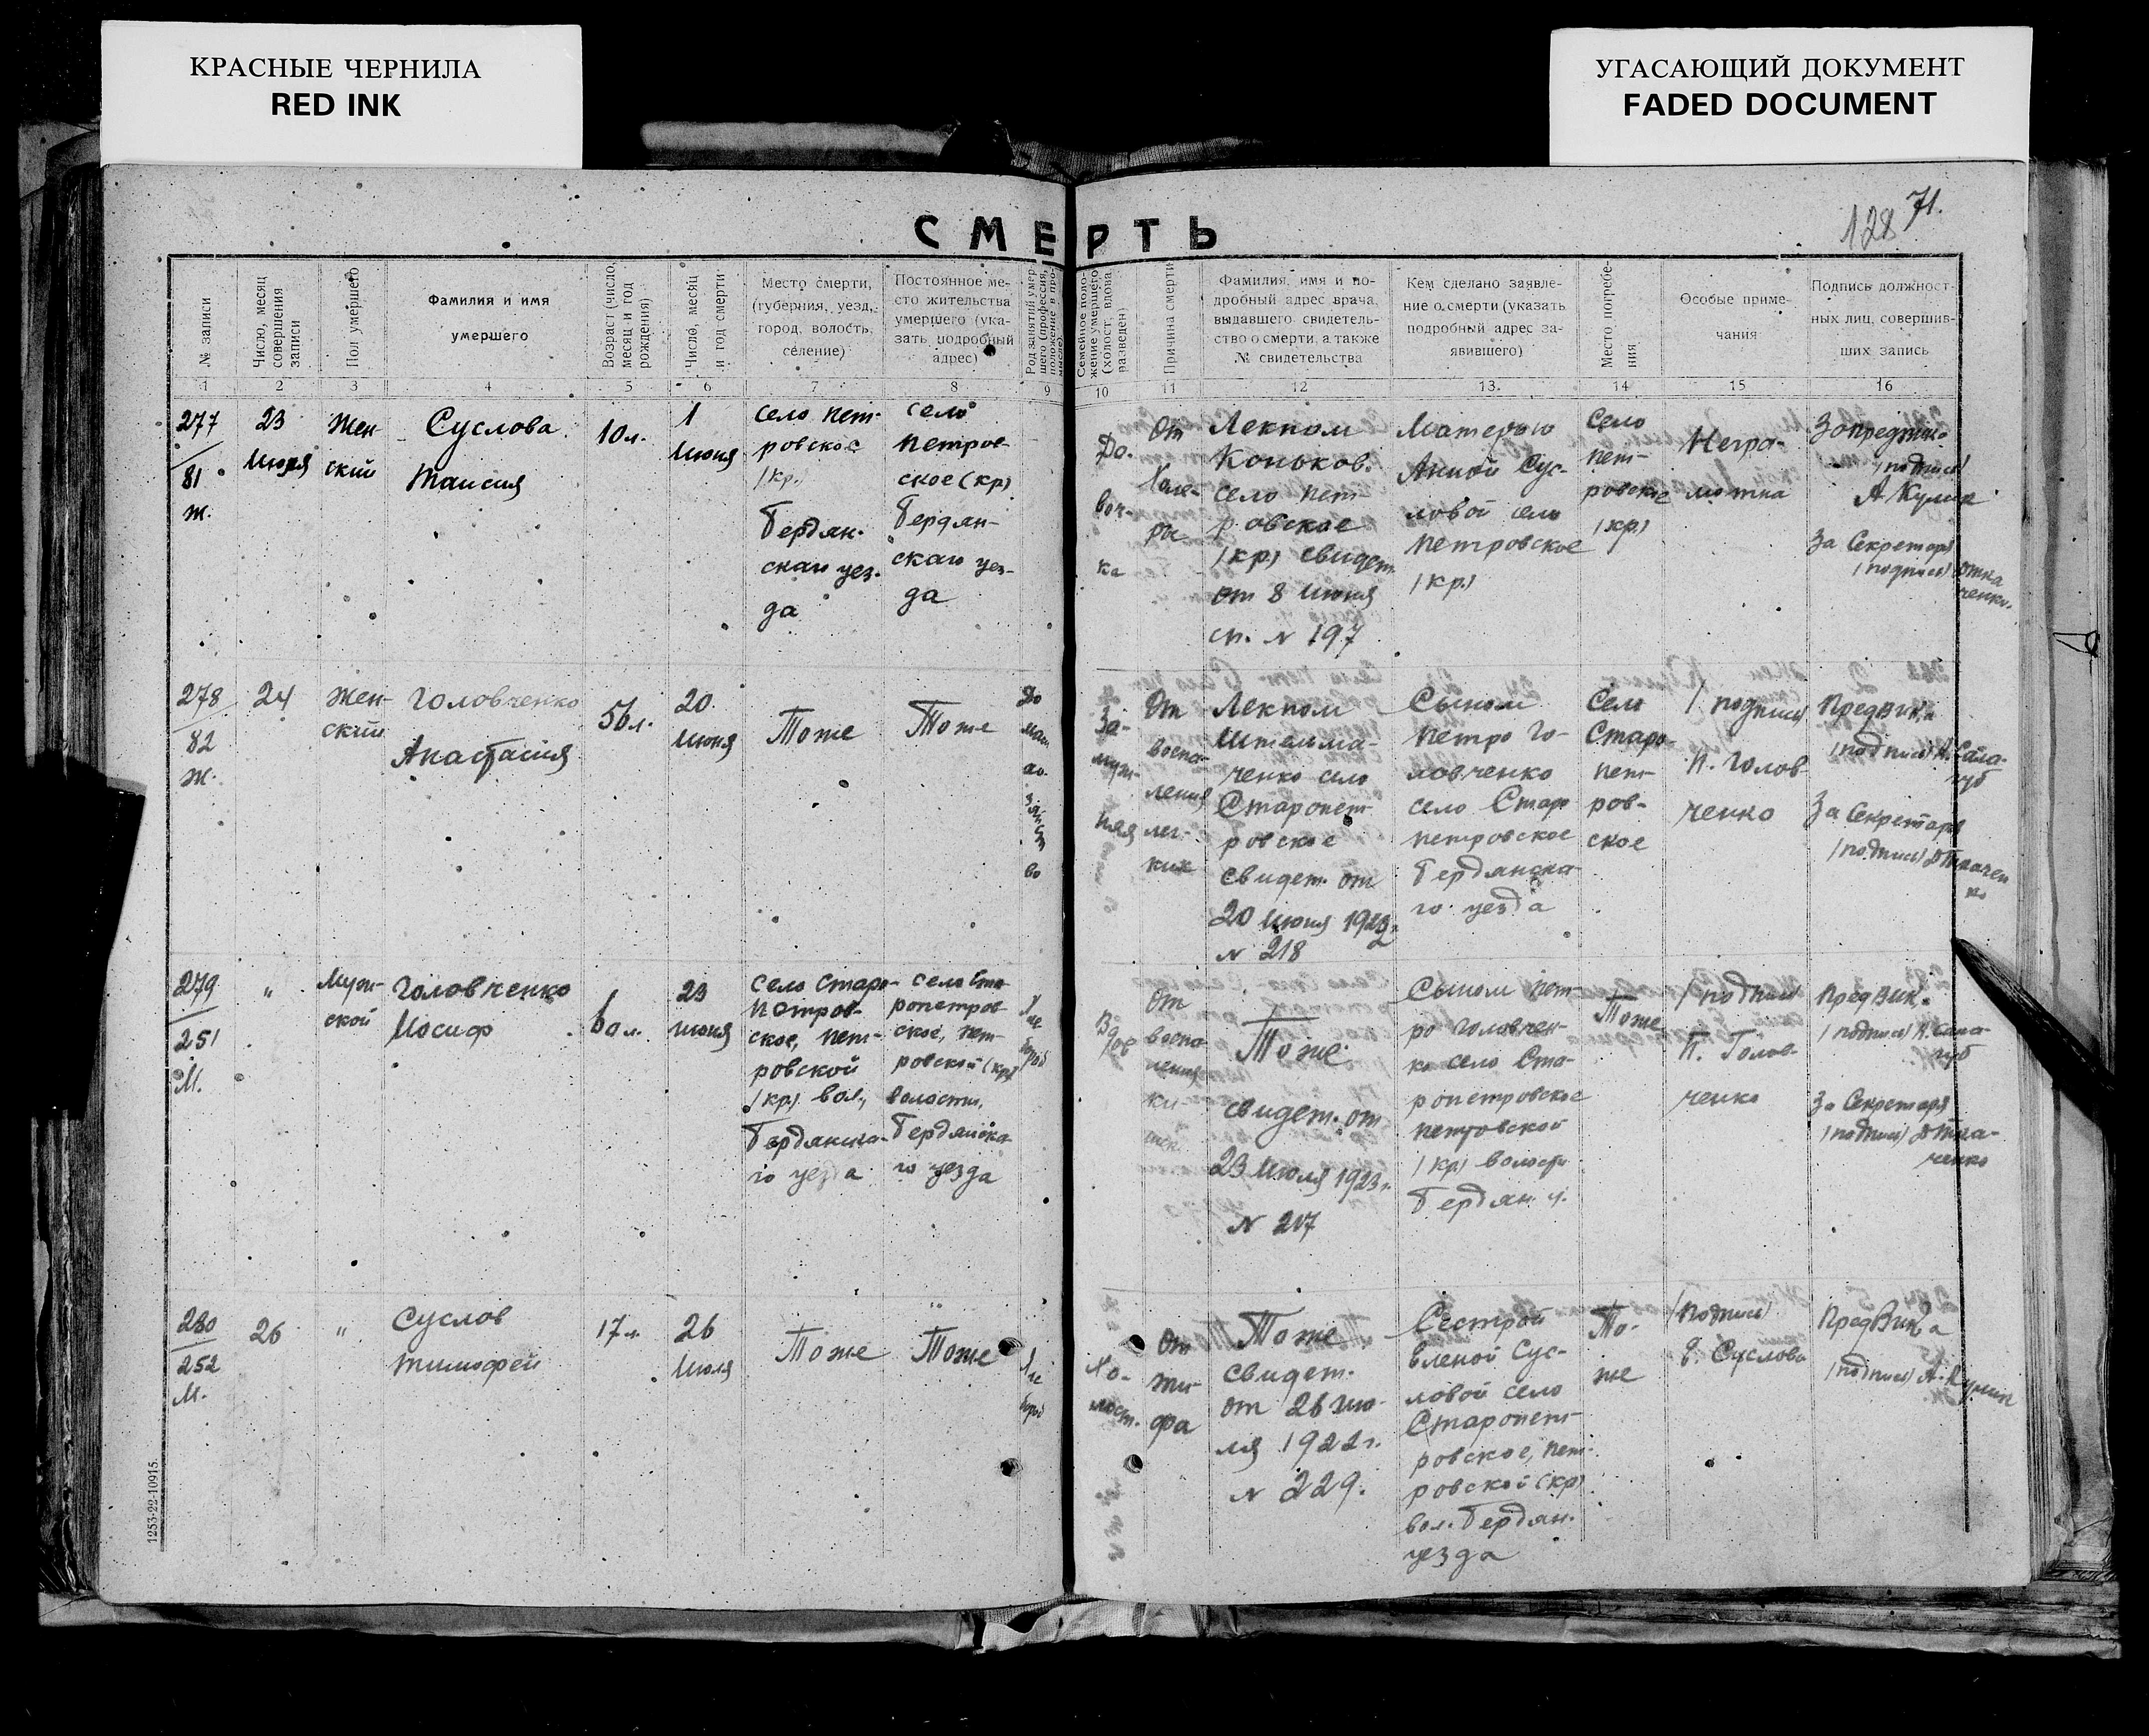 КРАСНЫЕ ЧЕРНИЛА
RED INK
УГАСАЮЩИЙ ДОКУМЕНТ
FADED DOCUMENT
128 71.
СМЕРТЬ
№ записи
Число, месяц
совершения
записи
Пол умершего
Фамилия и имя
умершего
Возраст (число,
месяц и год
рождения)
Число, месяц
и год смерти
Место смерти,
(губерния, уезд,
город, волость,
селение)
Постоянное ме-
сто жительства
умершего (ука-
зать подробный
адрес)
Род занятий умер-
шего (профессия,
положение в про-
Семейное поло-
жение умершего
(холост, вдова
разведен)
Причина смерти
Фамилия, имя и по-
дробный адрес врача,
выдавшего свидетель-
ство о смерти, а также
№ свидетельства
Кем сделано заявле-
ние о смерти (указать
подробный адрес за-
явившего)
Место погребе-
ния
Особые приме-
чания
Подпись должност-
ных лиц, совершив-
ших запись
1 2 3 4 5 6 7 8 9 10 11 12 13. 14 15 16
277
81
ж.
23
Июля
Жен-
ский
Суслова
Таисия
10 л.
1
Июня
село Пет-
ровское
/кр./
Бердян-
скаго уез-
да
село
Петров-
ское (кр)
Бердян-
скаго уез-
да
Де-
воч-
ка
От
Холе-
ры
Лекпом
Коньков.
село Пет
ровское
/кр/ свидет.
от 8 Июня
с.г. № 197
Матерью
Анной Сус-
ловой село
Петровское
/кр./
Село
Пет-
ровское
/кр/
Негра-
мотна
Зампредвик.
/подпись/
А Кулик
За Секретаря
/подпись/ Отка
ченко.
278
82
ж.
24
Жен-
ский
Головченко
Анастасия
56 л.
20
Июня
Тоже
Тоже
До
маш
хо.
зяйст
во
За-
муж-
няя
От
воспа-
ления
лег-
ких
Лекпом
ченко село
Старопет-
ровское
свидет. от
20 Июня 1922г.
№ 218
Сыном
Петро Го-
ловченко
село Старо
петровское
Бердянска-
го уезда
Село
Старо
пет-
ров-
ское
/подпись/
П. Голов-
ченко
Предвик.
/подпись/ А. Сала-
губ
За Секретаря
/подпись/ ДТкачен
ко
279
251
М.
"
Муж-
ской
Головченко
Иосиф
60 л.
23
Июня
село Старо-
Петров-
ское, Пет-
ровской
/кр/ вол.,
Бердянска-
го уезда
село Ста
ропетров
ское, Пет-
ровской (кр)
волости,
Бердянска-
го уезда
Хле
бороб
Вдов
От
воспа
ления
ки-
шек
Тоже
свидет. от
23 Июля 1923г.
№ 217
Сыном Пет-
ро Головчен-
ко село Ста-
ропетровское
Петровской
/кр/ волости
Бердян. у.
Тоже
/подпись/
П. Голов-
ченко
Предвик.
/подпись/ А. Сала-
губ
За Секретаря
/подпись/ ДТка-
ченко
280
252
М.
26
"
Суслов
Тимофей
17 л.
26
Июля
Тоже
Тоже
Хле
бороб
Хо-
лост.
От
ти-
фа
Тоже
свидет.
от 26 Ию-
ля 1922г.
№ 229.
Сестрой
Еленой Сус-
ловой село
Старопет-
ровское, Пет-
ровской (кр)
вол. Бердян.
уезда
То-
же
/подпись/
Е. Суслова
Предвика
/подпись/ А. Кулик
1253-22-10915.